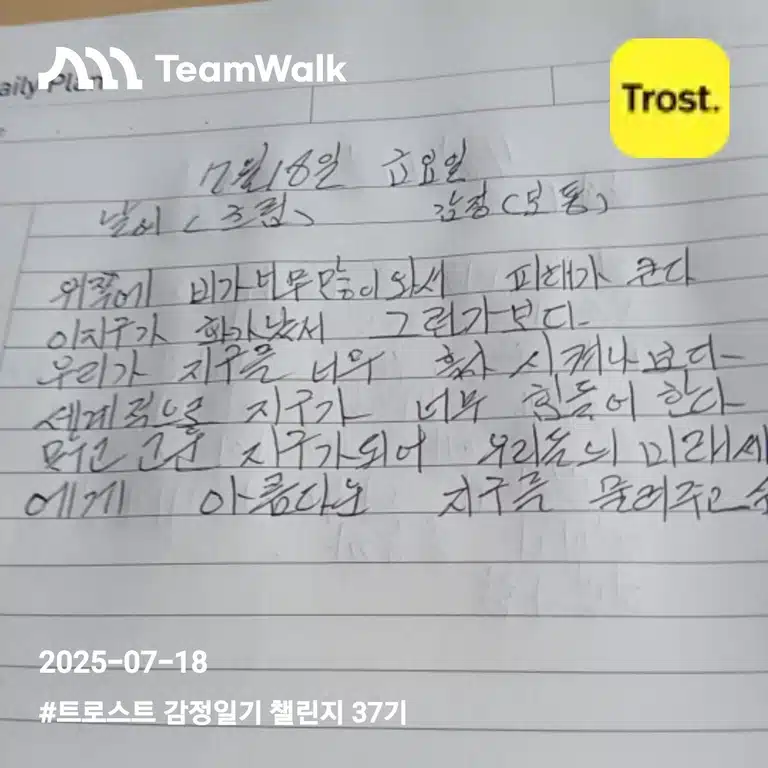 TeamWalk
Trost.
aily Plan
7월 18일 금요일
날씨 (흐림) 감정 (보통)
위쪽에 비가 너무 많이 와서 피해가 큰다
이지구가 화가 났서 그런가보다-
우리가 지구를 너무 혹사 시켜나보다-
센계적으로 지구가 너무 힘들어 한다
지구가되어 우리들의 미래세
에게 아름다운 지구를 물려주고
2025-07-18
#트로스트 감정일기 챌린지 37기